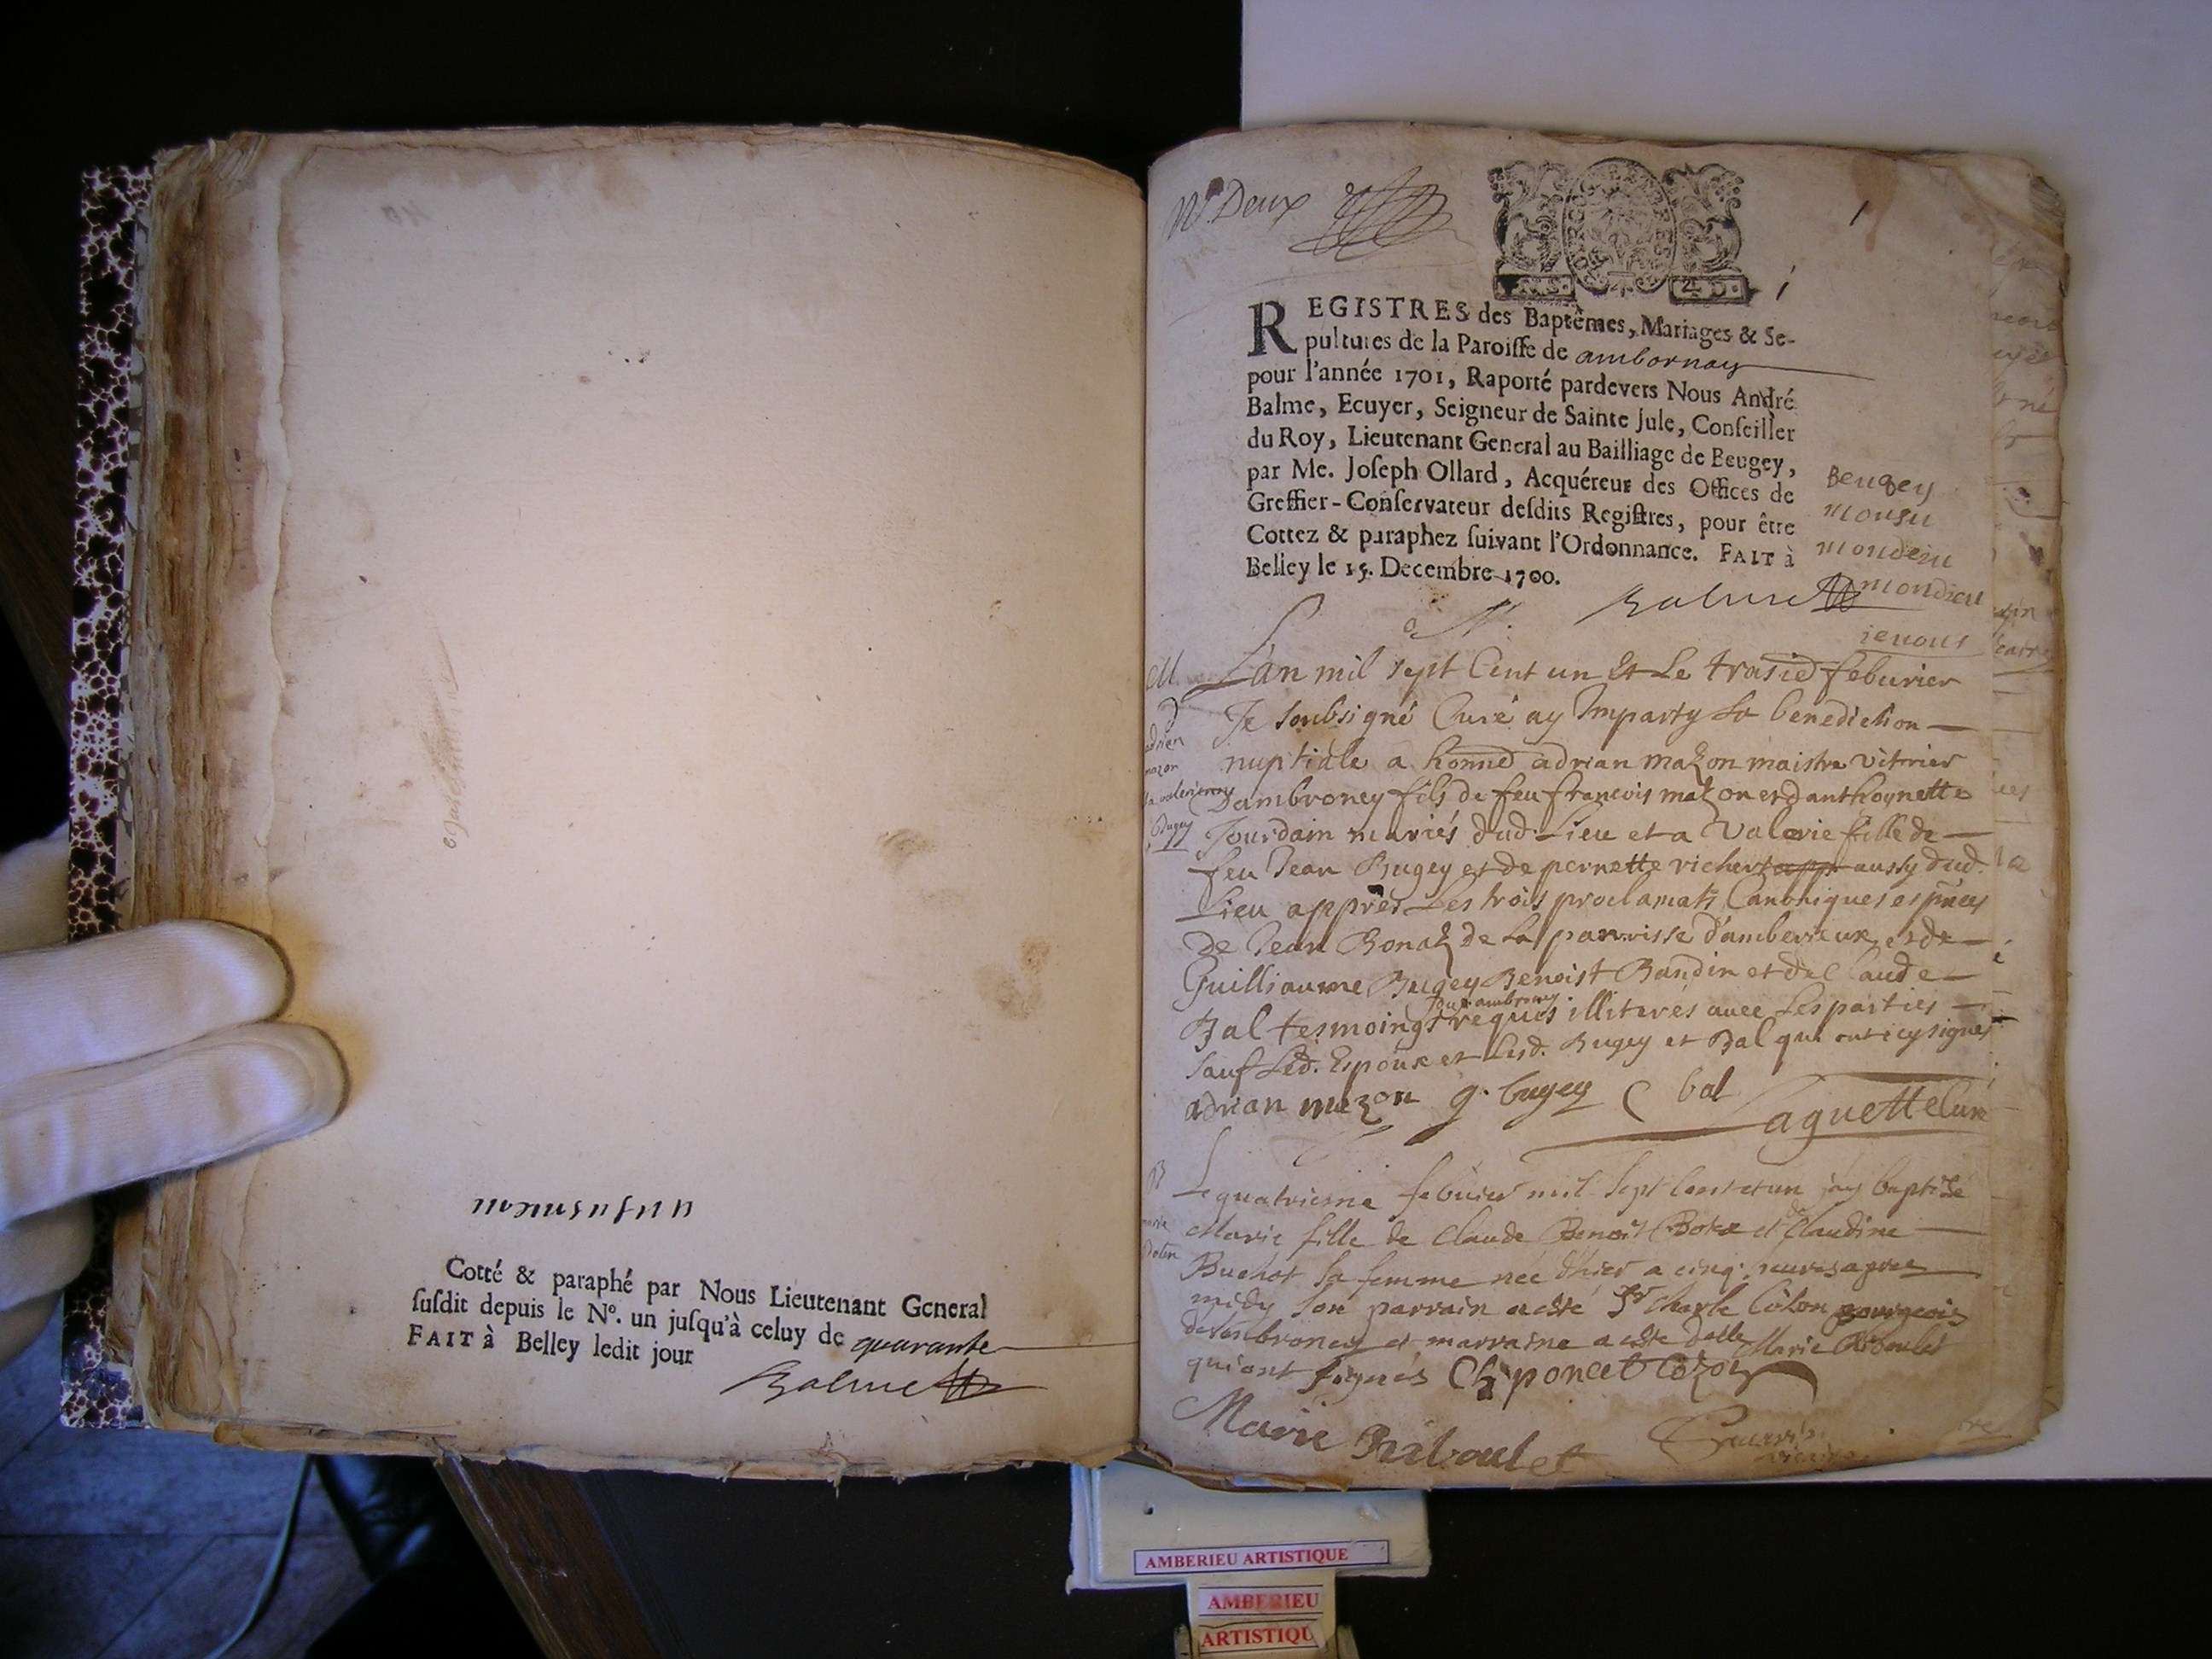 Cotté & paraphé par Nous Lieutenant General
susdit depuis le Nº. un jusqu'à celuy de quarante
FAIT à Belley ledit jour
Balme
No. Deux
1
REGISTRES des Baptêmes, Mariages & Se-
pultures de la Paroisse de ambornay
pour l'année 1701, Raporté pardevers Nous André
Balme, Ecuyer, Seigneur de Sainte Jule, Conseiller
du Roy, Lieutenant General au Bailliage de Beugey,
par Me. Joseph Ollard, Acquéreur des Offices de
Greffier-Conservateur desdits Registres, pour être
Cottez & paraphez suivant l'Ordonnance. FAIT à
Belley le 15. Decembre 1700.
Balme
Beugey
monsu
mondeiu
mondieu
ievous
M.
adrian
mazon
Bugey
L'an mil sept Cent un Et Le febvrier
Je soubsigné Curé ay Imparty La benediction
nuptiale a honnê adrian mazon maistre vitrier
Dambroney fils de feu francois mazon et danthoynette
Jourdain mariés dud. Lieu et a Valerie fille de
feu Jean Bugey et de pernette richert aussy dud.
Lieu appres Les trois proclamats Canoniques es pñces
de Jean Bonaz de La parroisse d'amberieux et de
Guilliaume Bugey Benoist Bandin et de Claude
Bal tesmoings requis illiterés avec Les parties
tous ambroney
sauf Led. Espoux et Lesd. Bugey et Bal qui ont icy signés
adrian mazon g. bugey C bal
aguettelure
B
marie
Le quatriesme febvrier mil sept cent et un jay baptise
Marie fille de Claude Benoit et de Claudine
Buchot sa femme née d'hier a cinq heures apres
midy son parrain a esté Sr Charle Cozon bourgeois
dambroney et marraine a esté delle Marie Riboulet
qui ont signés Ch poncet Cozon
Marie Riboulet